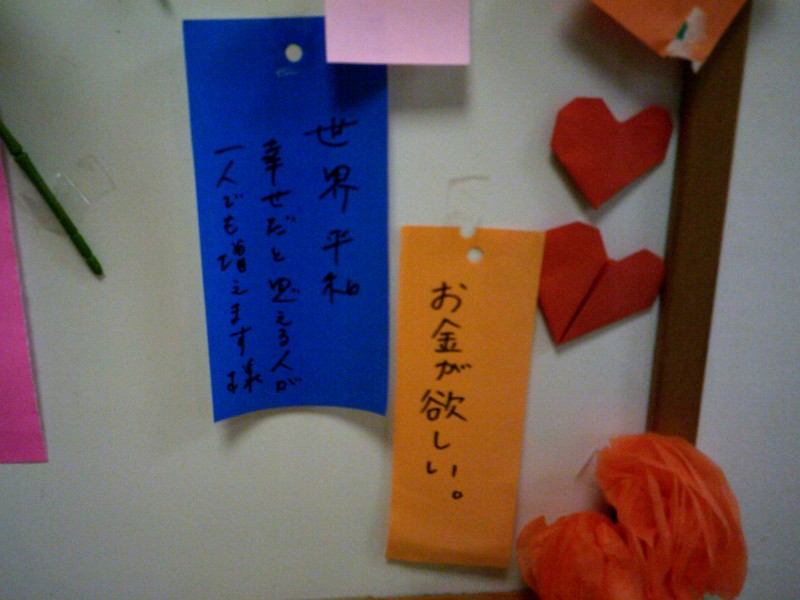 世界平和
幸せだと思える人が
一人でも増えます様
お金が欲しい。